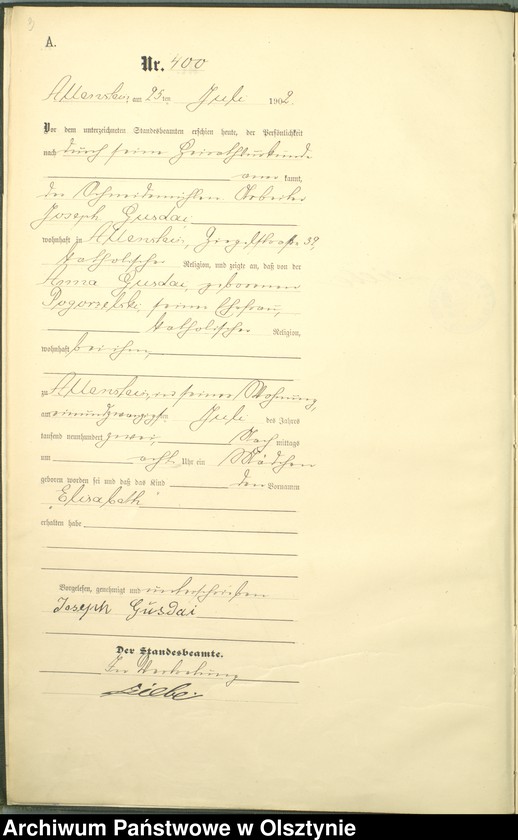 A.
Nr. 400
Allenstein, am 25ten Juli 1902.
Vor dem unterzeichneten Standesbeamten erschien heute, der Persönlichkeit
nach durch seine Heirathsurkunde
aner kannt,
der Schneidemühlen Arbeiter
Joseph Gusdai
wohnhaft zu Allenstein, Ziegelstraße 3
katholischer Religion, und zeigte an, daß von der
Anna Gusdai, geborenen
Pogorzelski, seiner Ehefrau,
katholischer Religion,
wohnhaft bei ihm,
zu Allenstein, in seiner Wohnung,
am einundzwanzigsten Juli des Jahres
tausend neunhundert zwei, Nach mittags
um acht Uhr ein Mädchen
geboren worden sei und daß das Kind den Vornamen
„Elisabeth"
erhalten habe
Vorgelesen, genehmigt und unterschrieben
Joseph Gusdai
Der Standesbeamte.
In Vertretung
Archiwum Państwowe w Olsztynie